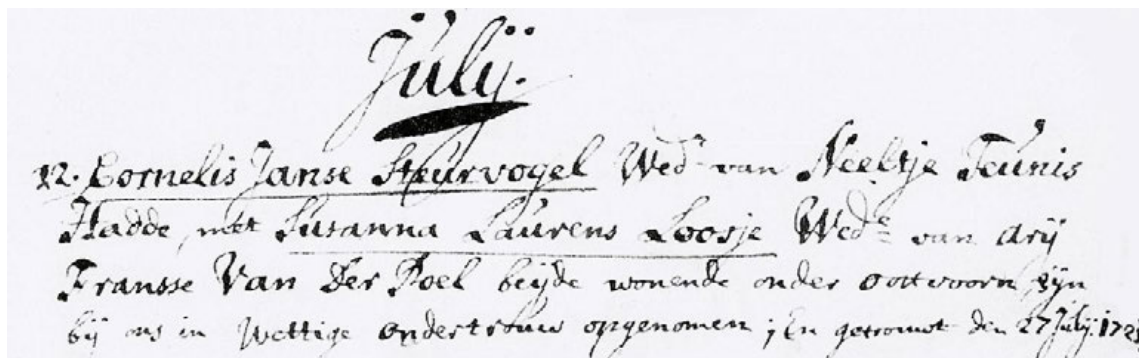 Julij.
12. Cornelis Janse Steurvogel Wed.r van Neeltje Teunis
Hadde, met Susanna Laurens Loosje Wed.e van Arij
Fransse Van Der Poel beijde wonende onder ootvoorn, zijn
bij ons in Wettige ondertrouw opgenomen; En getrouwt den 27 Julij.